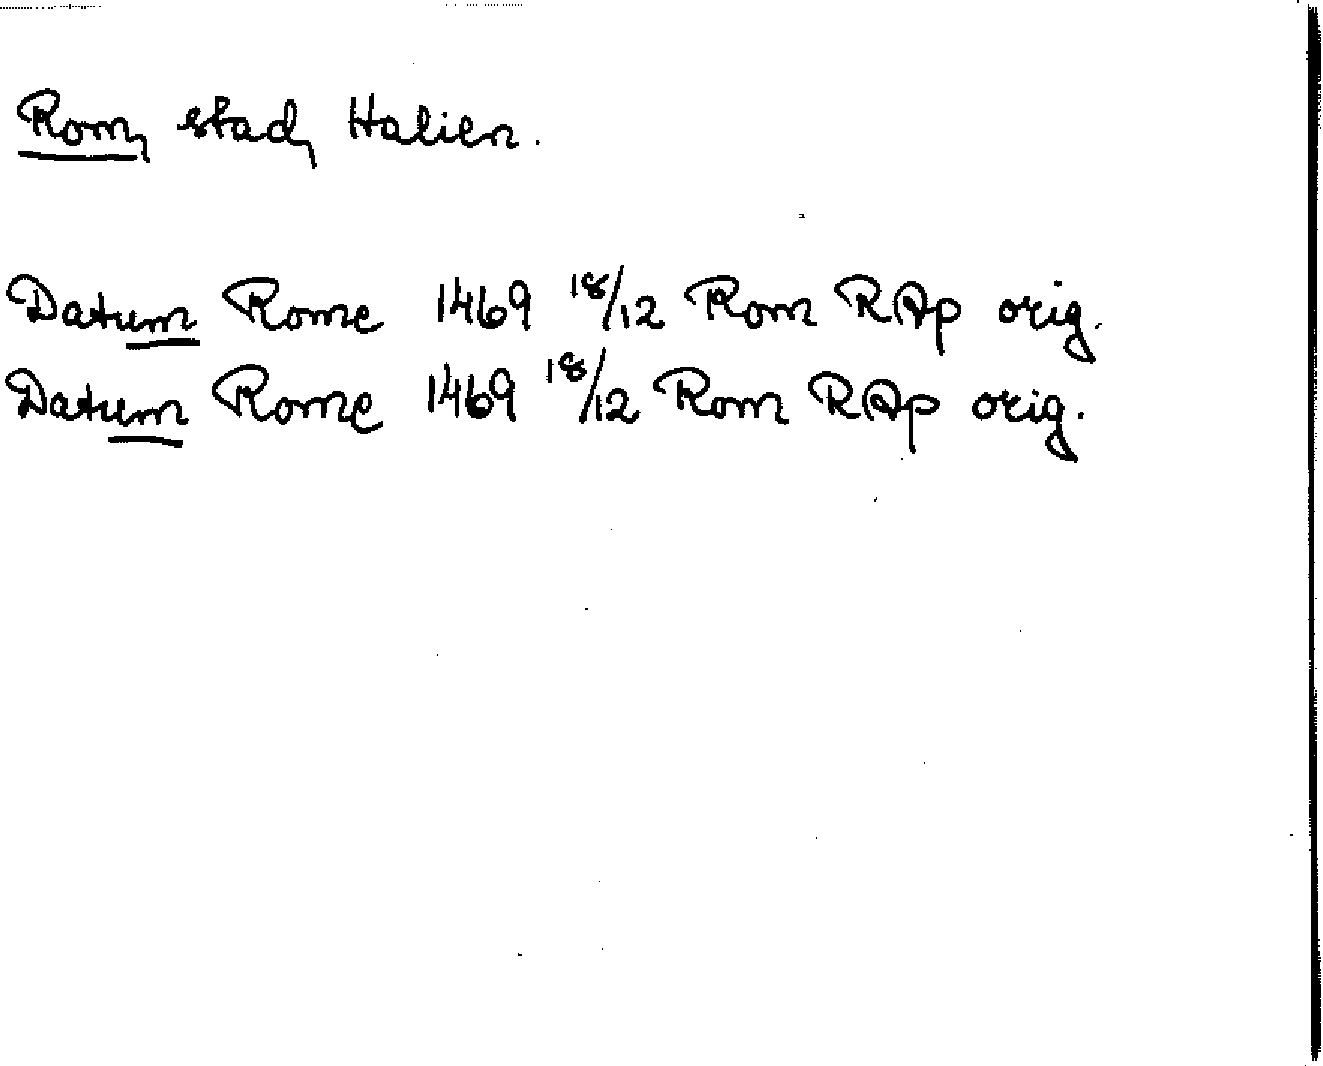 Rom, stad, Italien.
Datum Rome 1469 18/12 Rom RAp orig.
Datum Rome 1469 18/12 Rom RAp orig.